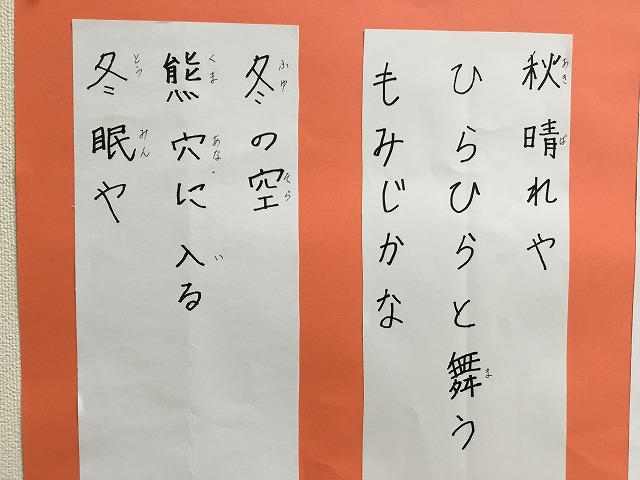 秋晴れや
ひらひらと舞う
もみじかな
冬の空
熊穴に入る
冬眠や